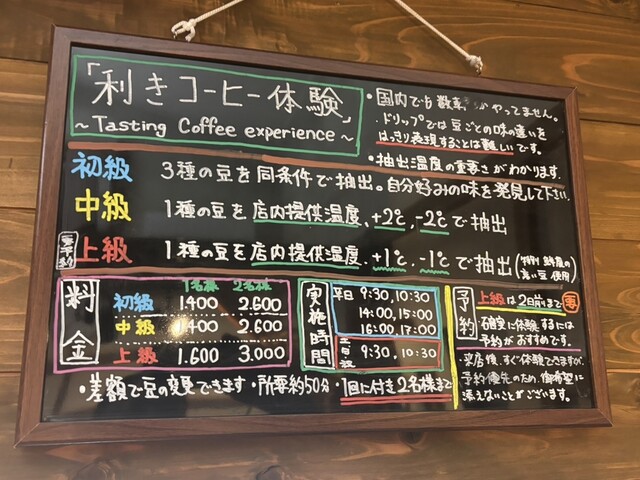 「利きコーヒー体験」
~ Tasting Coffee experience ~
・国内でも数軒しかやってません。
・ドリップでは豆ごとの味の違いを
はっきり表現することは難しいです。
・抽出温度の重要さがわかります。
初級 3種の豆を同条件で抽出。自分好みの味を発見して下さい。
中級 1種の豆を店内提供温度、+2℃、-2℃で抽出
要予約 上級 1種の豆を店内提供温度、+1℃、-1℃で抽出(特別鮮度の高い豆使用)
料金
1名様 2名様
初級 1.400 2.600
中級 1.400 2.600
上級 1.600 3.000
実施時間
平日 9:30, 10:30
14:00, 15:00
16:00, 17:00
土日祝 9:30, 10:30
予約
上級は2日前まで 要
・確実に体験するには
予約がおすすめです。
・来店後、すぐ体験できますが、
予約優先のため、御希望に
添えないことがございます。
・差額で豆の変更できます・所要約50分・1回に付き2名様まで